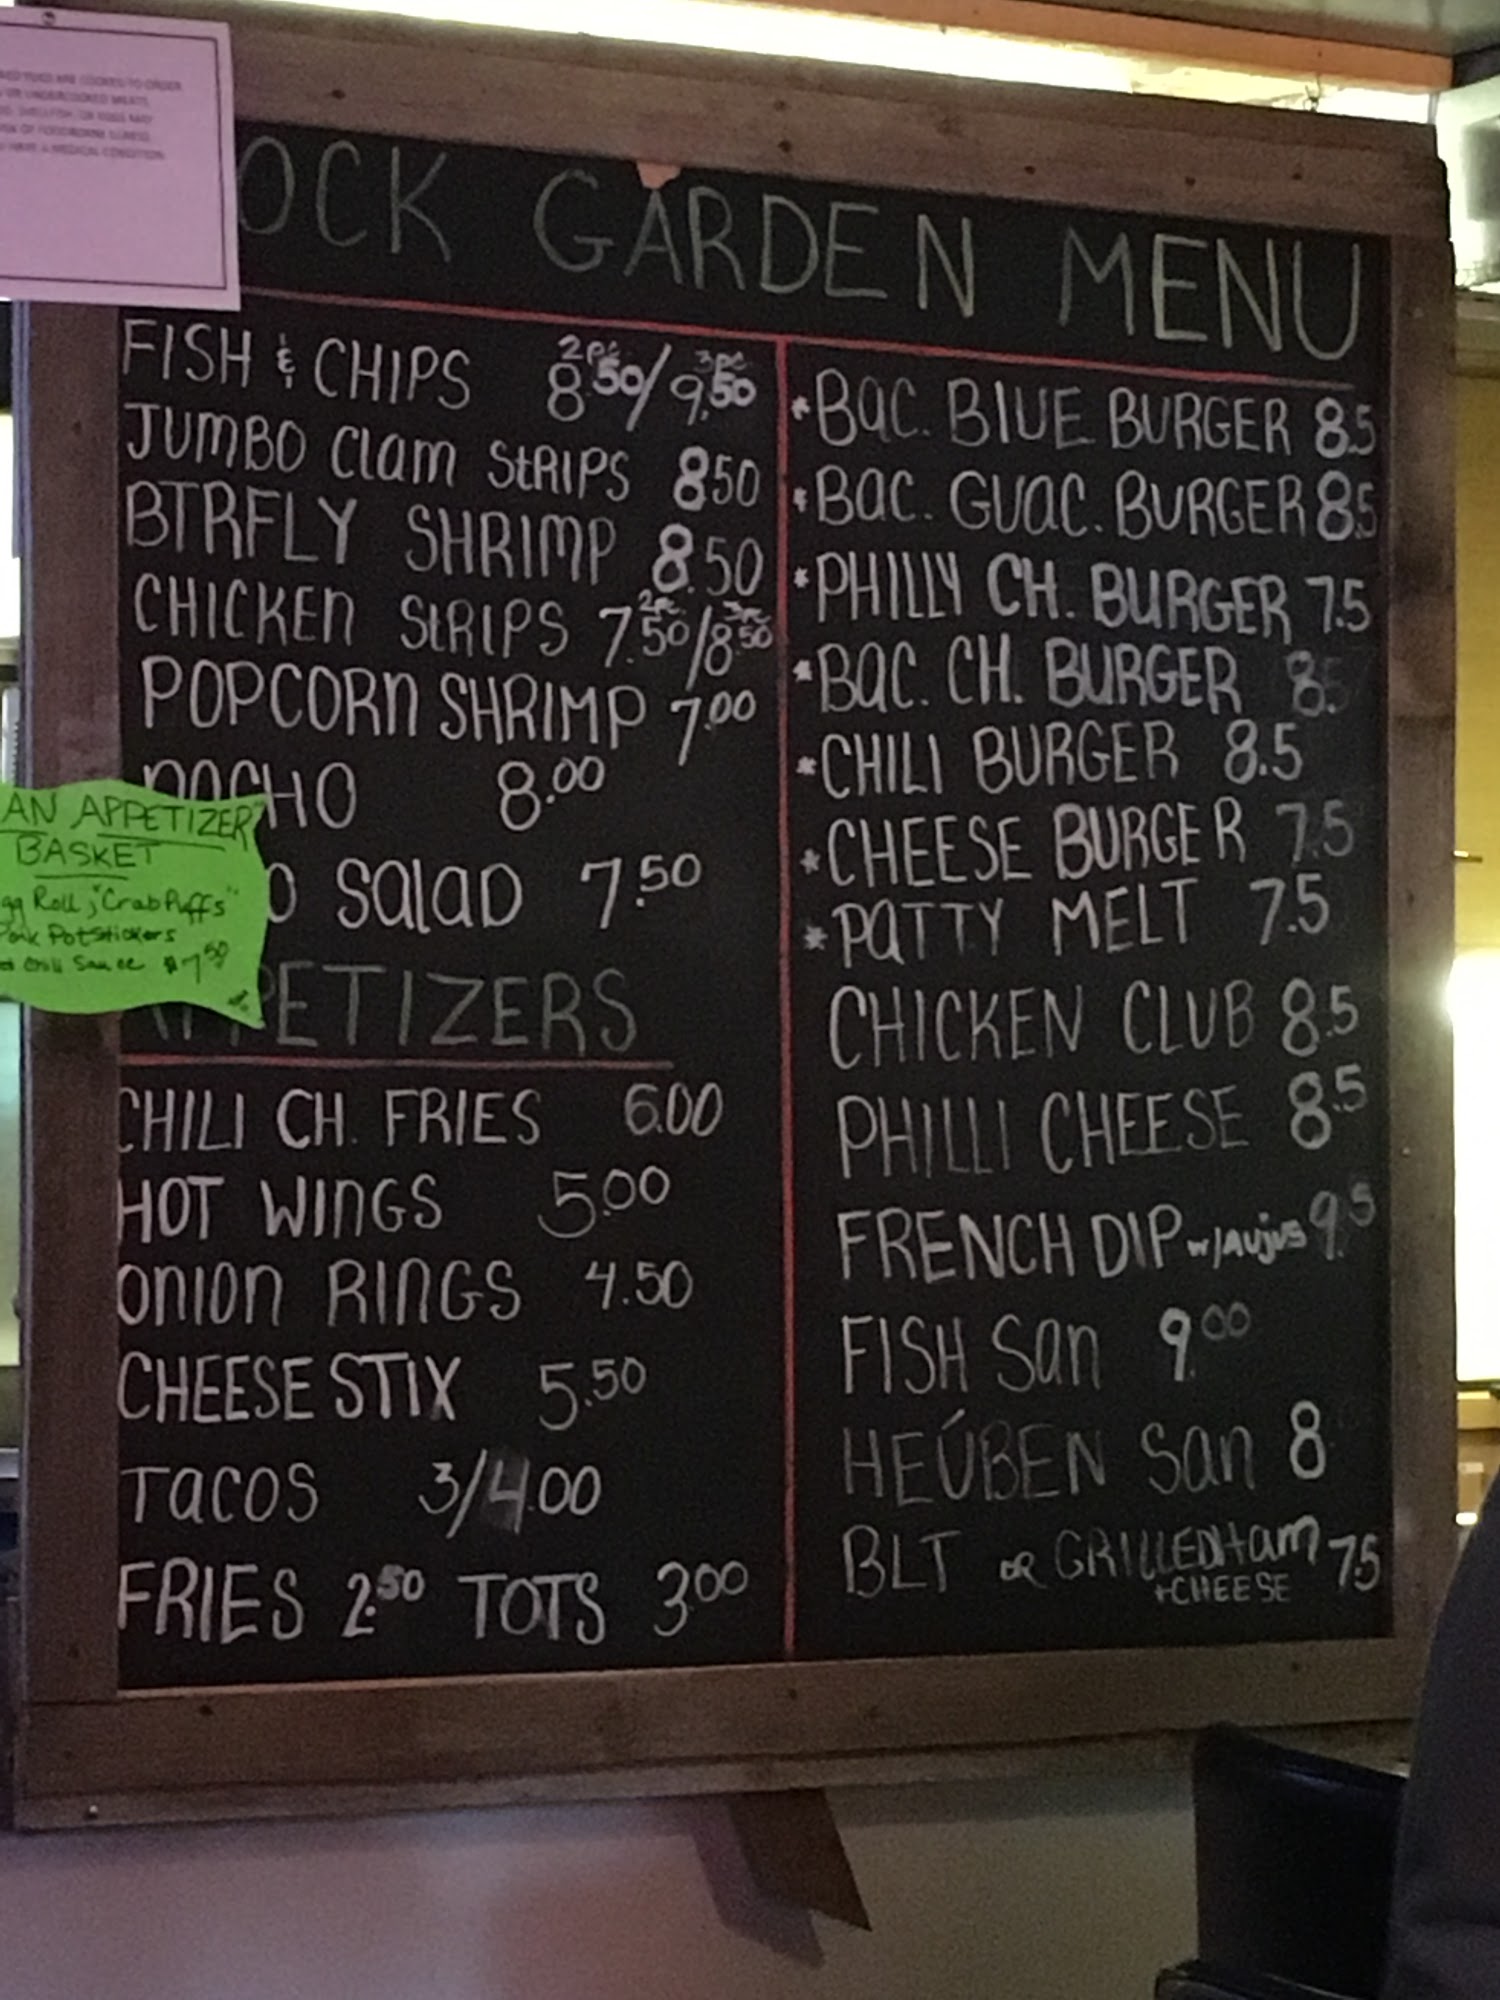 FOOD ARE COOKED TO ORDER
OR UNDERCOOKED MEATS,
SHELLFISH, OR EGGS MAY
OF FOODBORNE ILLNESS
HAVE A MEDICAL CONDITION
OCK GARDEN MENU
FISH & CHIPS 2pc. 8.50/ 3pc 9.50
JUMBO Clam StRIPS 850
BTRFLY SHRIMP 8.50
CHICKEN StRIPS 2pc. 7.50/ 3pc 8.50
POPCORN SHRIMP 7.00
NACHO 8.00
O SalaD 7.50
AN APPETIZER
BASKET
gg Roll, "Crab Puffs"
Pork Potstickers
Chili Sauce $7.50
APPETIZERS
CHILI CH. FRIES 6.00
HOT WINGS 5.00
ONION RINGS 4.50
CHEESE STIX 5.50
TACOS 3/4.00
FRIES 2.50 TOTS 3.00
*Bac. BLUE BURGER 8.5
*Bac. GUac. BURGER 8.5
*PHILLY CH. BURGER 7.5
*Bac. CH. BURGER 8.5
*CHILI BURGER 8.5
*CHEESE BURGER 7.5
*PaTTY MELT 7.5
CHICKEN CLUB 8.5
PHILLI CHEESE 8.5
FRENCH DIP w/AUjus 9.5
FISH San 9.00
HEÚBEN San 8
BLT OR GRILLED Ham 7.5
+CHEESE